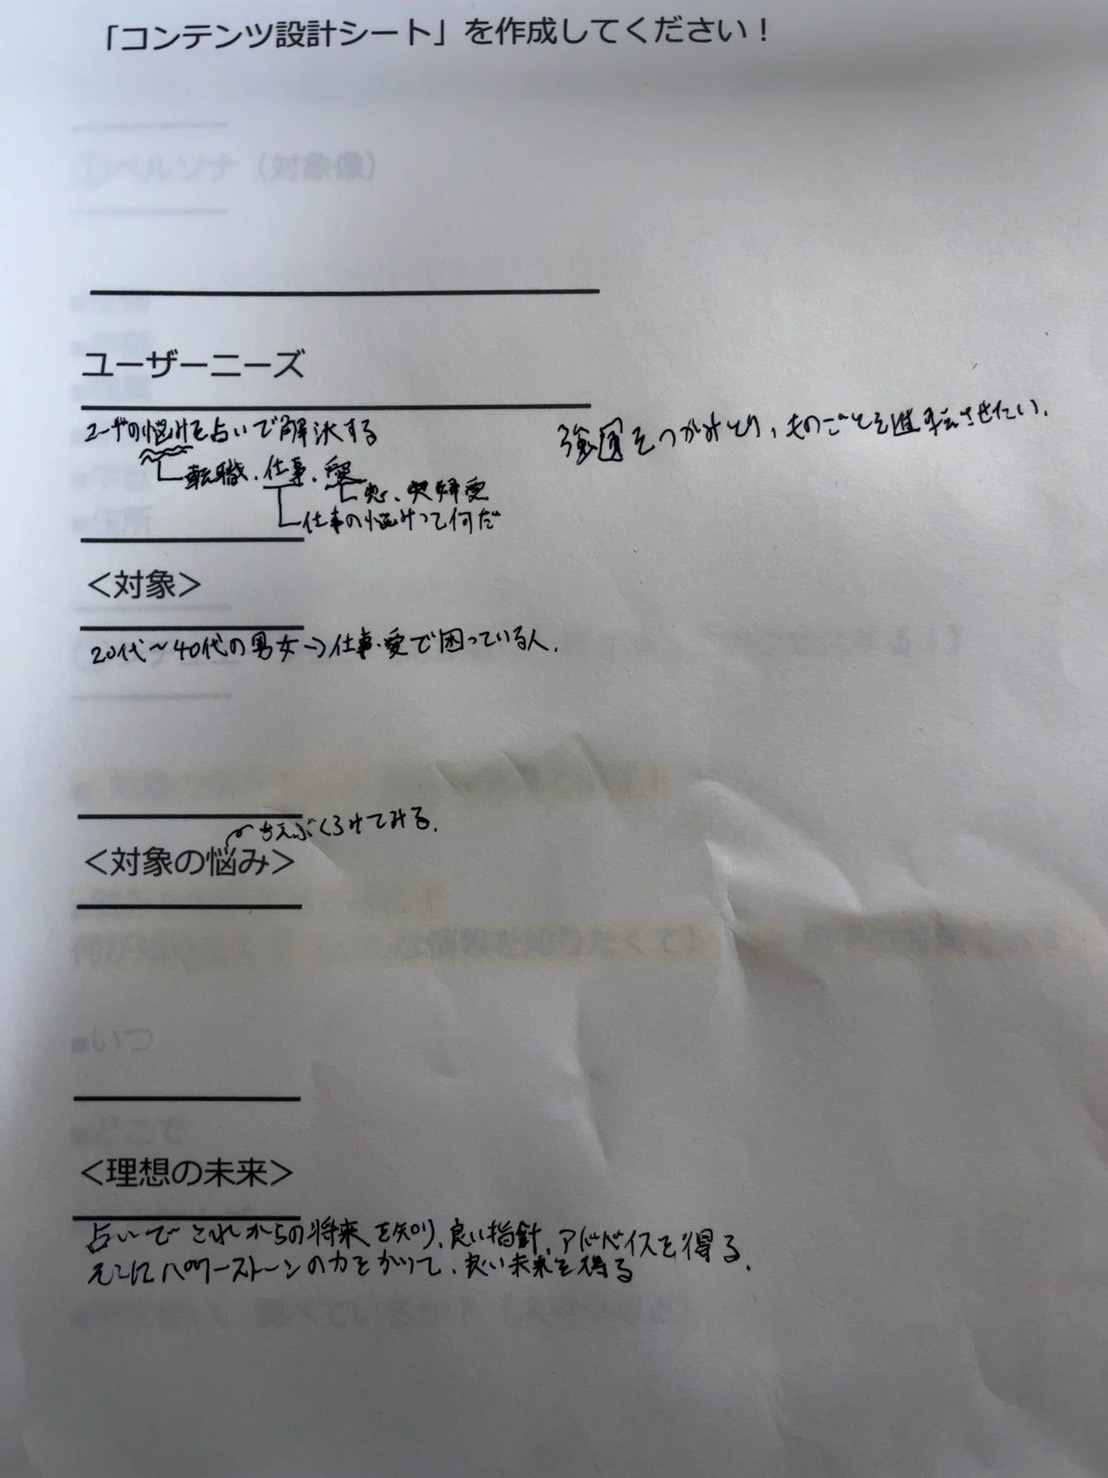 「コンテンツ設計シート」を作成してください！
①ペルソナ（対象像）
ユーザーニーズ
ユーザの悩みを占いで解決する
強運をつかみとり、ものごとを進展させたい.
転職、仕事、愛
恋、夫婦愛
仕事の悩みって何だ
■住所
＜対象＞
20代〜40代の男女→仕事・愛で困っている人.
ちえぶくろみてみる.
＜対象の悩み＞
な情報を知りたくて）
■いつ
■どこで
＜理想の未来＞
占いでこれからの将来を知り、良い指針、アドバイスを得る.
そこにパワーストーンの力をかりて、良い未来を得る.